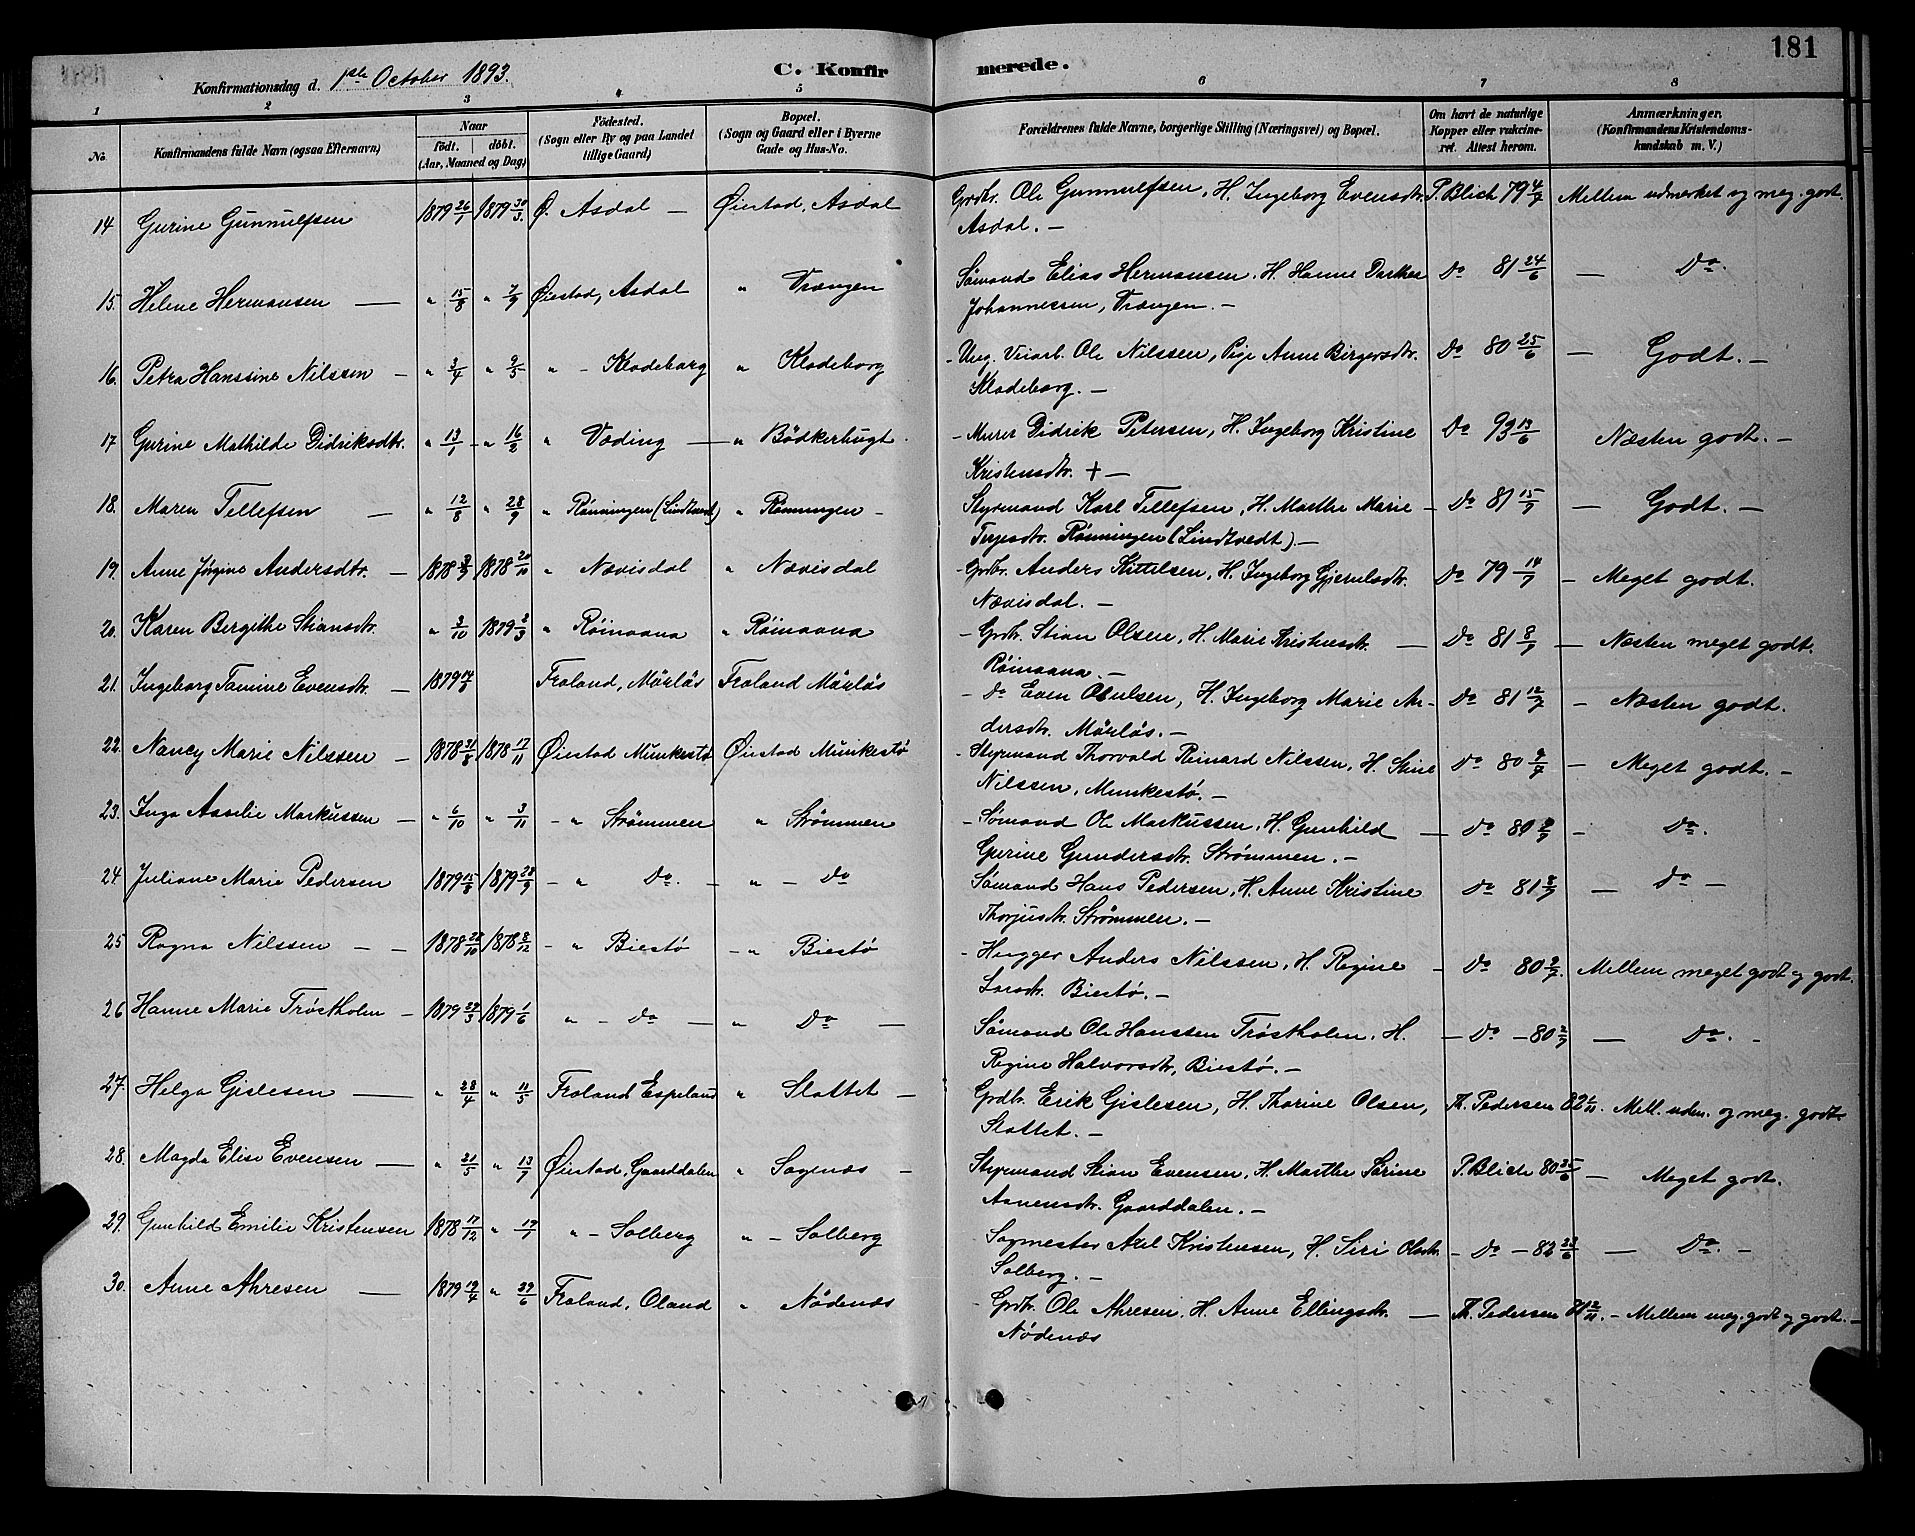 181
Konfirmationsdag d. 1ste October 1893.
C. Konfirmerede.
1 2 3 4 5 6 7 8
No.
Konfirmandens fulde Navn (ogsaa Efternavn)
Naar
födt. döbt.
(Aar, Maaned og Dag)
Födested.
(Sogn eller By og paa Landet
tillige Gaard)
Bopæl.
(Sogn og Gaard eller i Byerne
Gade og Hus-No.
Forældrenes fulde Navne, borgerlige Stilling (Næringsvei) og Bopæl.
Om havt de naturlige
Kopper eller vakcine-
ret. Attest herom.
Anmærkninger.
(Konfirmandens Kristendoms-
kundskab m. V.)
14 Gurine Gunnulfsen 1879 26/1 1879 30/3 Ø. Asdal — Øiestad, Asdal Grdbr. Ole Gunnulfsen, H. Ingeborg Evensdtr. P. Blich 79 4/7 Mellem udmerket og meg. godt.
Asdal. —
15. Helene Hermansen — " 15/8 " 7/9 Øiestad, Asdal " Vrængen Sømand Elias Hermansen. H. Hanne Dorthea Do 81 24/6 — Do.
Johannessen, Vrængen. —
16. Petra Hanssine Nilssen — " 3/4 " 2/5 " - Klodeborg " Klodeborg - Ung. Veiarb. Ole Nilssen, Pige Anne Birgersdtr. Do 80 25/6 — Godt. —
Klodeborg. —
17. Gurine Mathilde Didriksdtr. " 13/1 - " 16/2 " Væding — " Bödkerbugt - Murer Didrik Petersen, H. Ingeborg Kristine Do 93 13/6 Næsten godt. —
Kristensdtr. + —
18. Maren Tellefsen — " 12/8 " 28/9 " Rønningen (Lindtvedt) " Rønningen - Styrmand Karl Tellefsen, H. Marthe Marie — Do 81 15/7 — Godt. —
Terjesdtr. Rønningen (Lindtvedt) —
19. Anne Jørgine Andersdtr. — 1878 1878 20/10 " Nævisdal " Nævisdal - Grdbr. Anders Kittilsen, H. Ingeborg Gjerulsdtr. Do 79 14/7 — Meget godt.
Nævisdal. —
20. Karen Bergithe Stiansdtr. " 3/10 1879 2/3 " Röinaana " Röinaana - Grdbr. Stian Olsen, H. Marie Kristensdtr. — Do 81 8/7 — Næsten meget godt.
Röinaana. —
21. Ingeborg Tamine Evensdtr. — 1879 Froland, Mörlös Froland Mörlös - Do Even H. Ingeborg Marie An- Do 81 12/7 — Næsten godt.
dersdtr. Mörlös. —
22. Nancy Marie Nilssen — 1878 31/8 1878 17/11 Øiestad Munkestö Øiestad Munkestö - Styrmand Thorvald Reinard Nilssen, H. Stine Do 80 — Meget godt. —
Nilssen, Munkestø. —
23. Inga Assilie Markussen — " 6/10 " 3/11 - " Strømmen " Strømmen - Sømand Ole Markussen, H. Gunhild — Do 80 — Do.
Gurine Gundersdtr. Strømmen. —
24 Juliane Marie Pedersen 1879 15/8 1879 28/9 - " Do. — " — Do Sømand Hans Pedersen, H. Anne Kristine Do 81 8/7 — Do —
Thorjusdtr. Strømmen. —
25 Ragna Nilssen — — 1878 28/10 1878 8/12 - " Biestø - " Biestø - Hugger Anders Nilssen, H. Regine — Do 80 2/7. Mellem meget godt og godt.
Larsdtr. Biestø. —
26 Hanne Marie Tröstholen — 1879 1879 1/6 " - Do — " Do — Sømand Ole Hanssen Tröstholen. H. — Do — 80 2/7 — Do. -
Regine Halvorsdtr, Biestø. —
27. Helga Gislesen — " 28/4 " 11/5 Froland Espeland " Slottet — Grdbr. Erik Gislesen, H. Thorine Olsen, Th. Pedersen 82 Mell. udm. og meg. godt
Slottet. —
28. Magda Elise Evensen — " 21/5 " 13/7 Øiestad, Gaarddalen " Sagnæs — Styrmand Stian Evensen, H. Marthe Sörine P. Blich 80 25/6 — Meget godt.
Asnensdtr. Gaarddalen. —
29. Gunhild Emilie Kristensen 1878 17/12 " " - Solberg " - Solberg Sagmester Axel Kristensen, H. Siri Olsdtr. — Do — 82 23/6 — Do. —
Solberg. —
30. Anne Ahresen — 1879 19/4 " 29/6 Froland, Oland " Nödenæs - Grdbr. Ole Ahresen, H. Anne Ellingsdtr. — Th. Pedersen — Mellem meg. godt og godt. —
Nödenæs